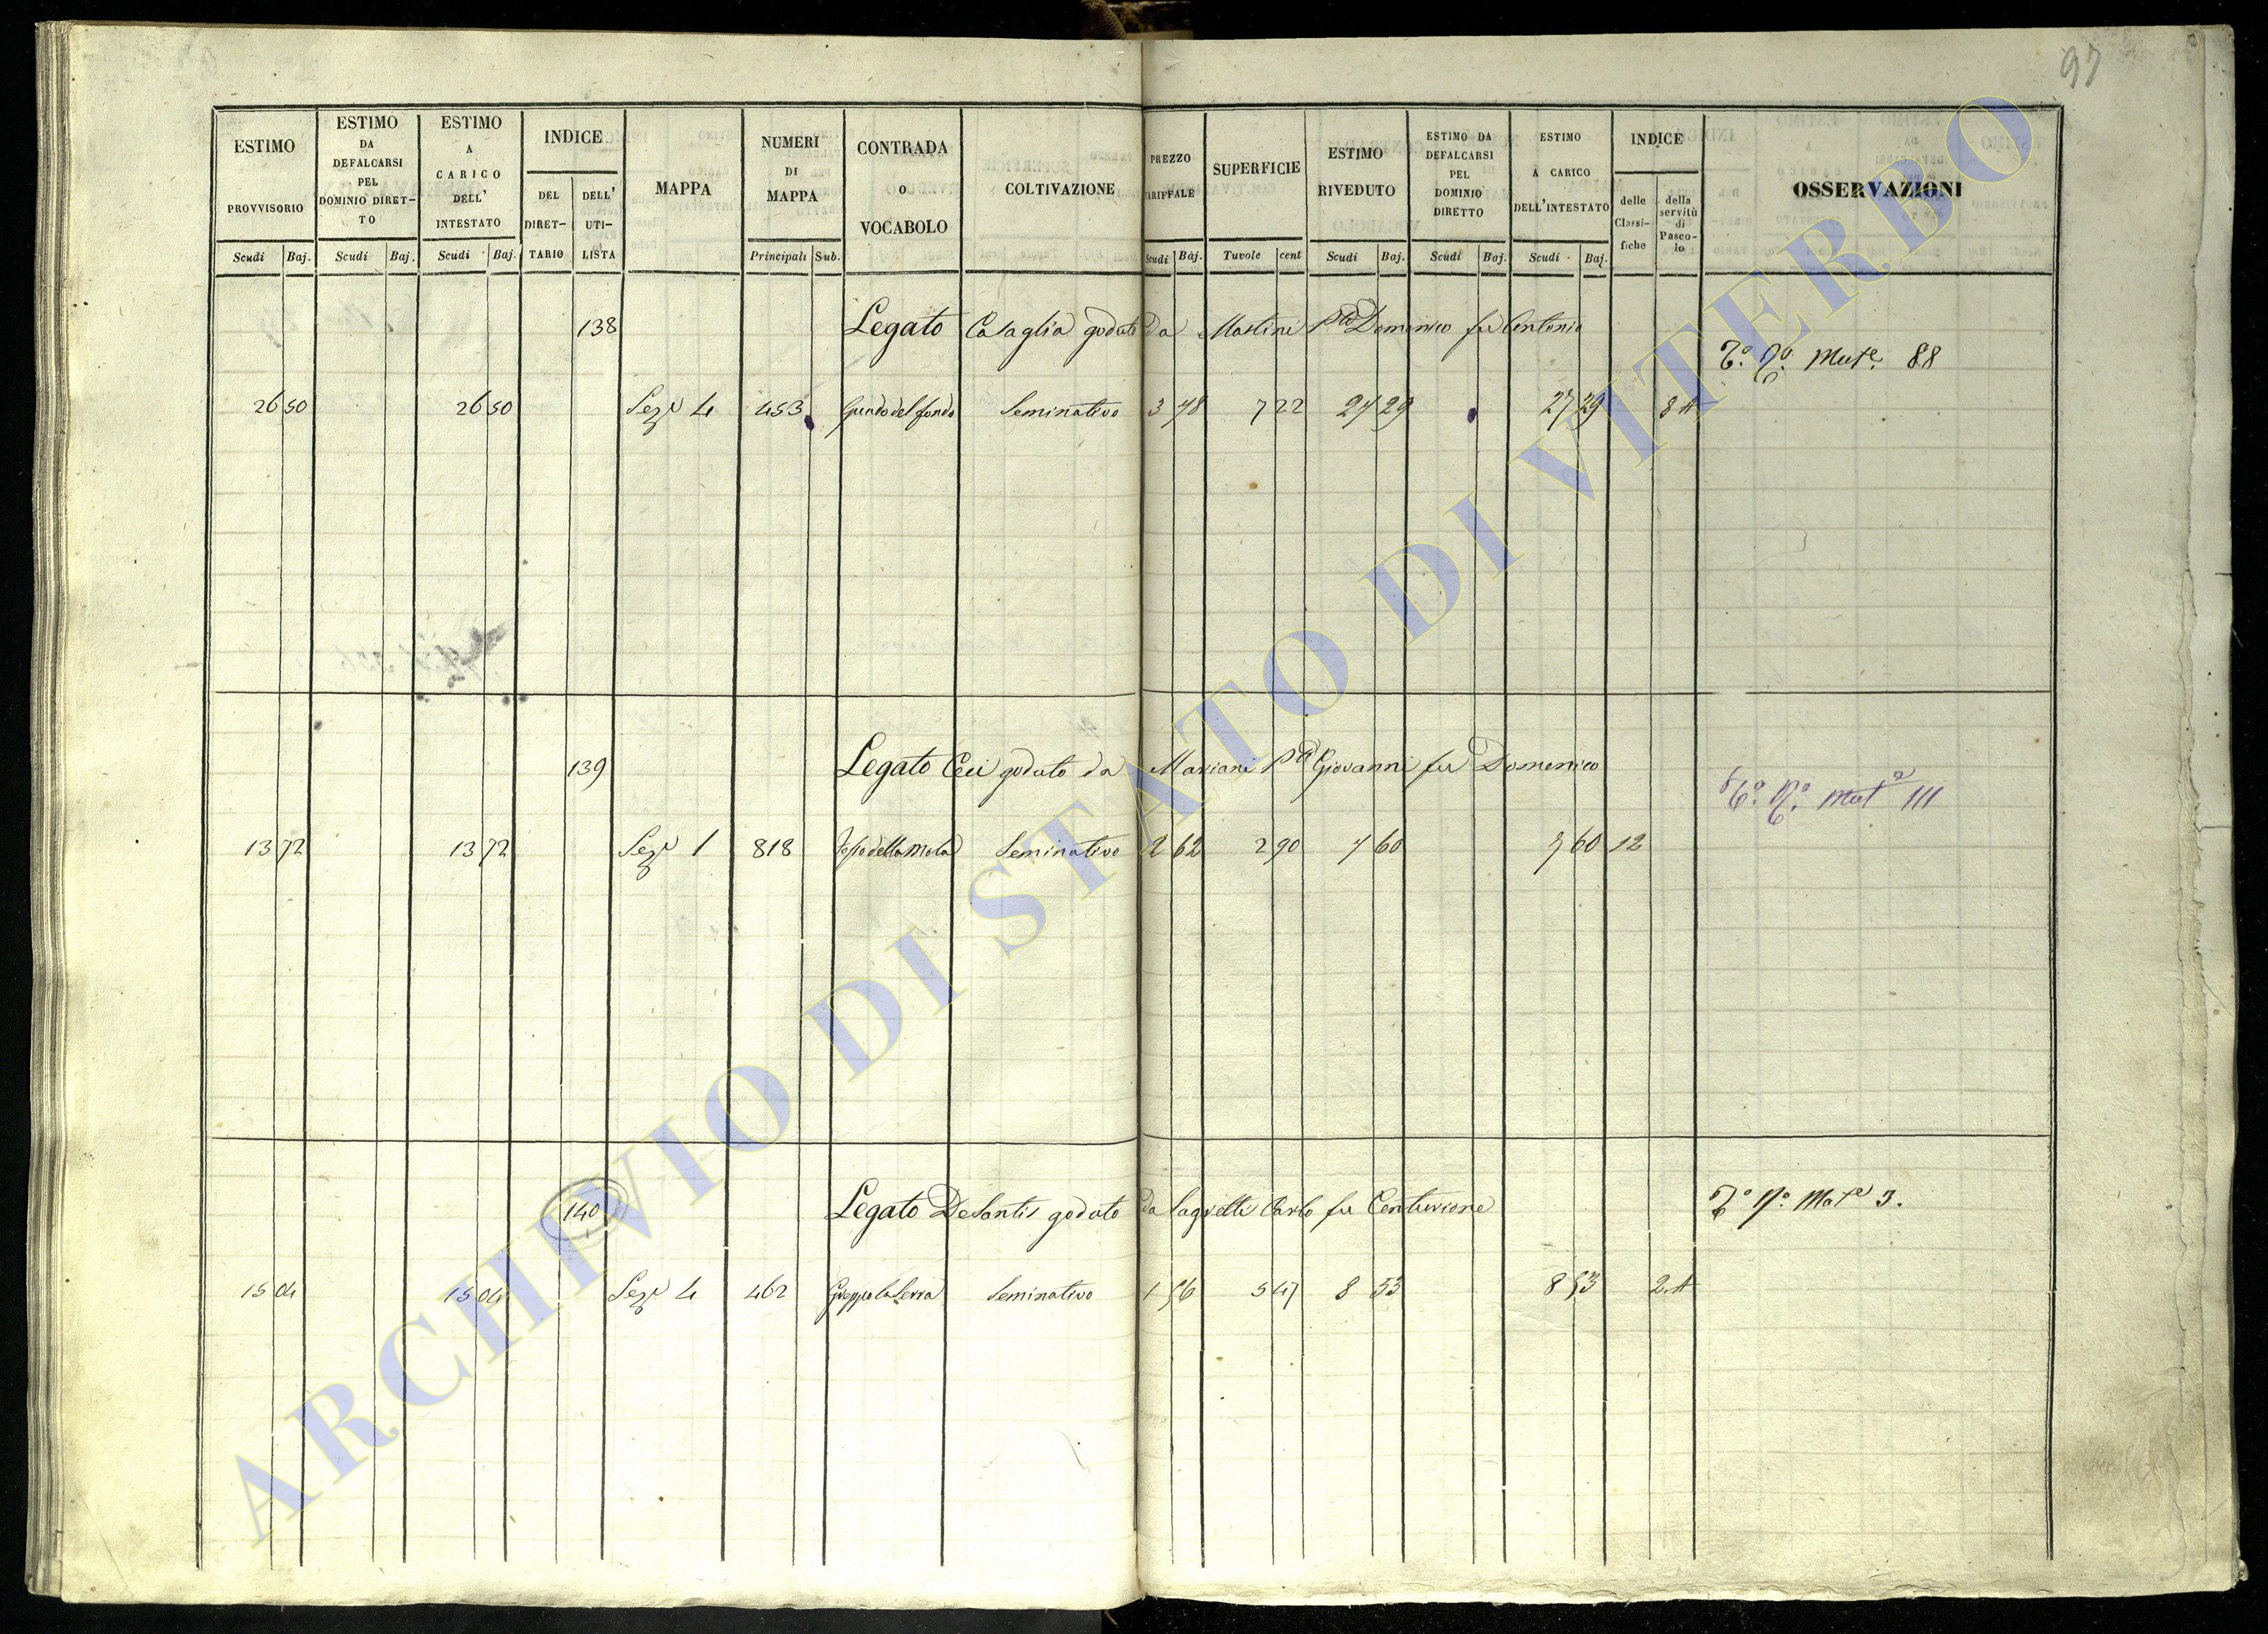 97
ESTIMO PROVVISORIO Scudi Baj.
ESTIMO DA DEFALCARSI PEL DOMINIO DIRET- TO Scudi Baj.
ESTIMO A CARICO DELL' INTESTATO Scudi Baj.
INDICE DEL DIRET- TARIO DELL' UTI- LISTA
MAPPA
NUMERI DI MAPPA Principali Sub.
CONTRADA O VOCABOLO
COLTIVAZIONE
PREZZO TARIFFALE Scudi Baj.
SUPERFICIE Tavole cent
ESTIMO RIVEDUTO Scudi Baj.
ESTIMO DA DEFALCARSI PEL DOMINIO DIRETTO Scudi Baj.
ESTIMO A CARICO DELL'INTESTATO Scudi Baj.
INDICE delle Classi- fiche della servitù di Pasco- lo
OSSERVAZIONI
138 Legato Casaglia goduto da Martini Domenico fu Antonio
Mut.e 88
26 50 26 50 Sez.e 4 453 Seminativo 3 78 7 22 27 29 27 29 8 A
139 Legato Ceci goduto da Mariani Giovanni fu Domenico
Mut.e 111
13 72 13 72 Sez.e 1 818 Fosso della Mola Seminativo 2 62 2 90 7 60 7 60 12
140 Legato DeSantis goduto da Sagretti Carlo fu Centurione
Mut.e 3.
15 04 15 04 Sez.e 4 462 Greppo la Serra Seminativo 1 56 5 47 8 53 8 53 2 A
ARCHIVIO DI STATO DI VITERBO